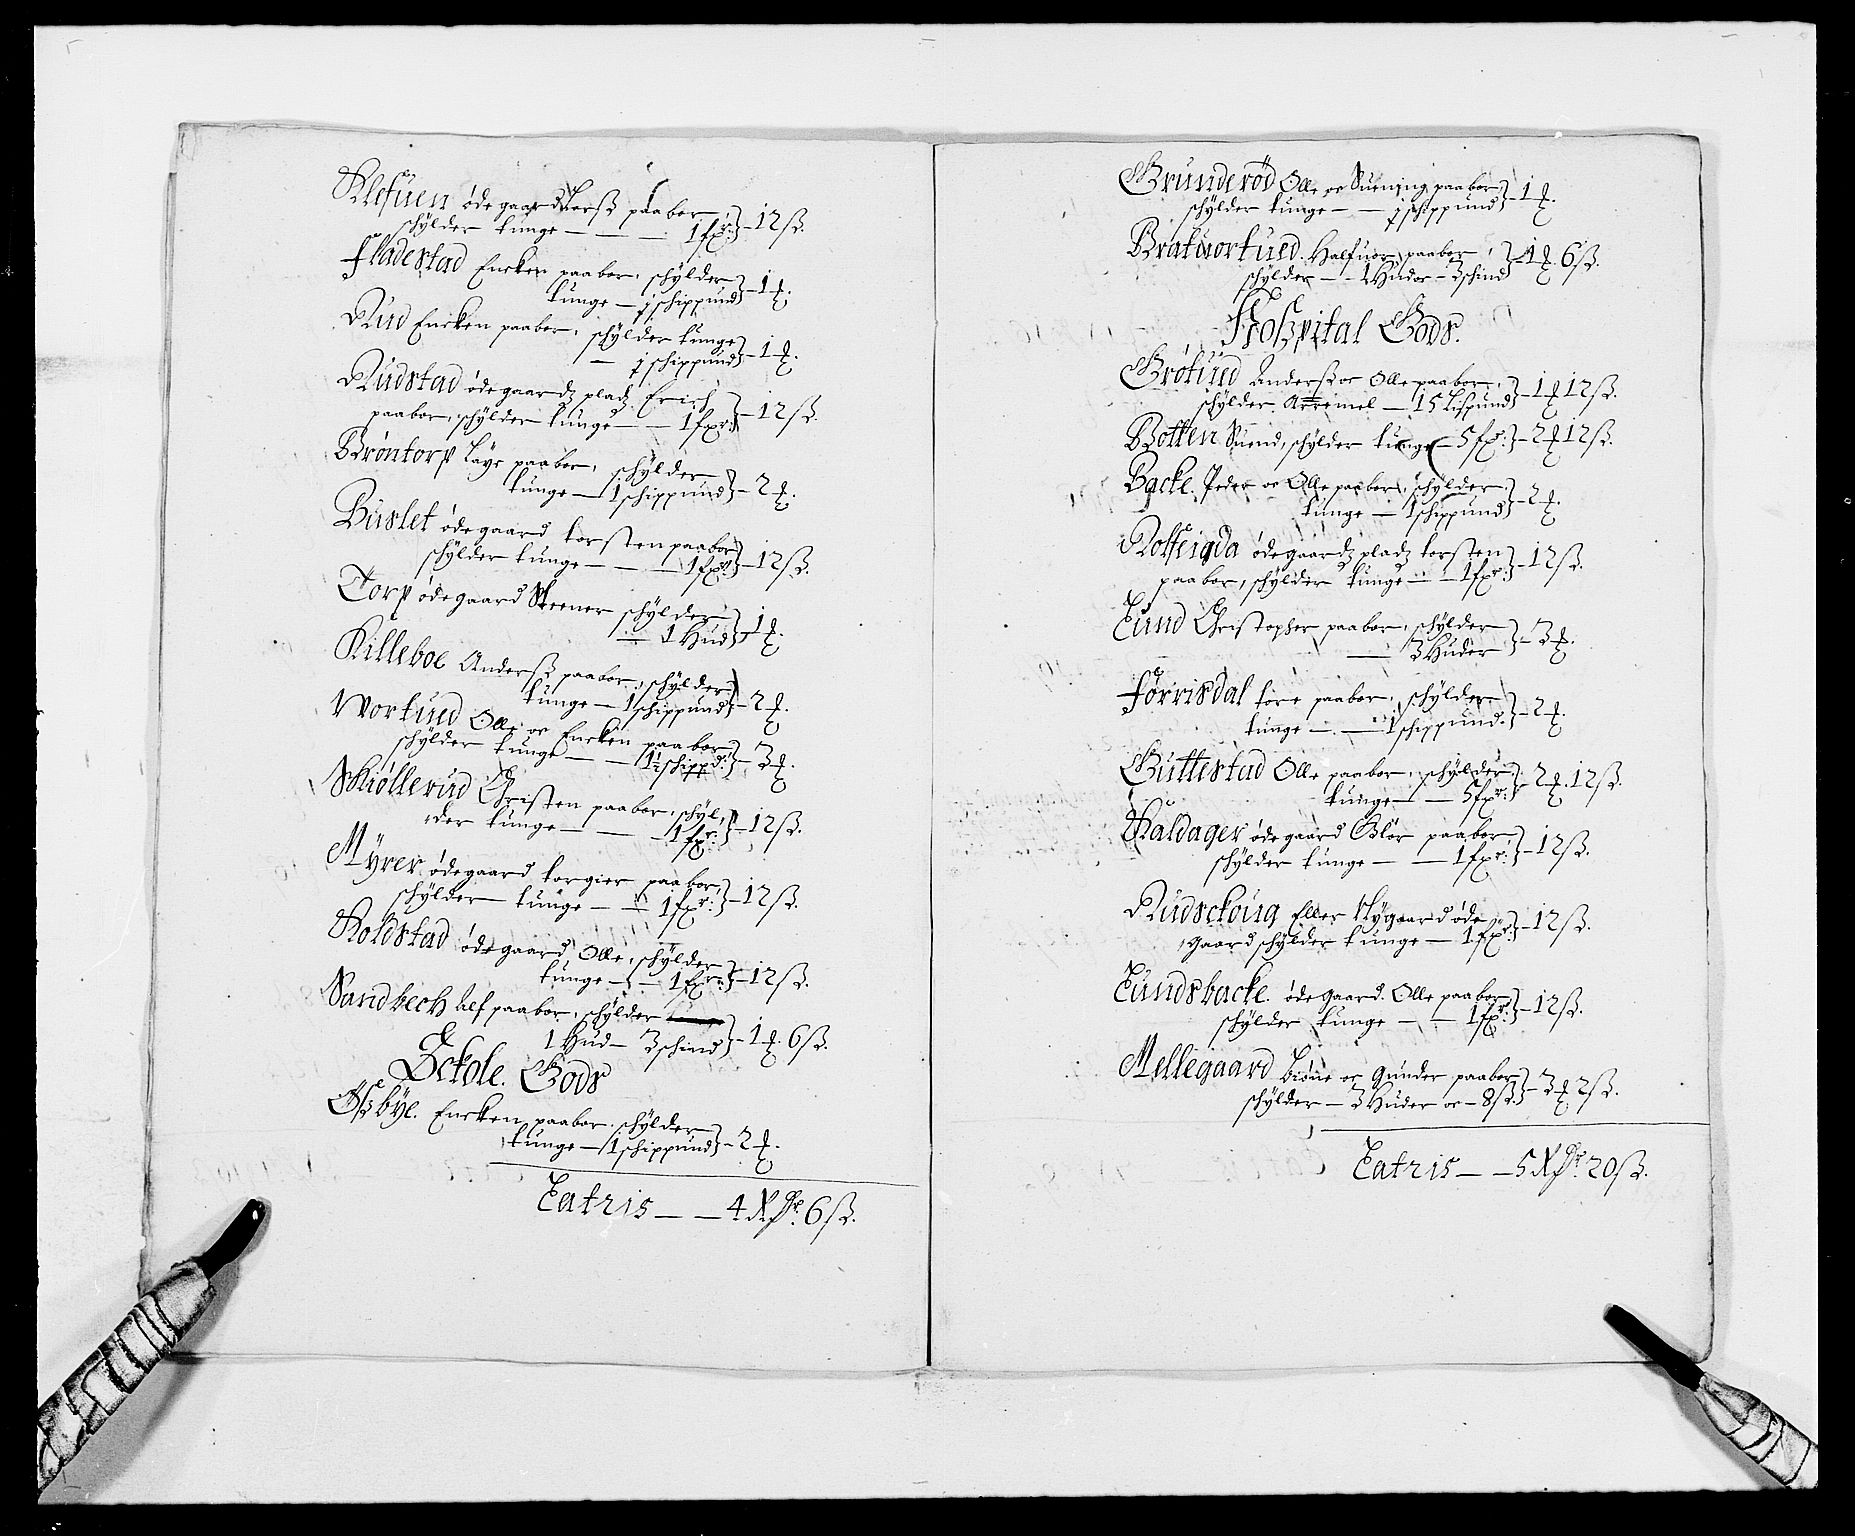 Klefuen ödegaard Lerß paaboer
schÿlder tunge — — 1 fxr: } – 12 ß.
Fladestad Encken paaboer, schÿlder
tunge — j schippund } – 1 ₰.
Rud Encken paaboer, schÿlder tunge
— j schippund } – 1 ₰.
Rudstad ödegaardz pladz Erich
paaboer, schÿlder tunge — 1 fxr: } – 12 ß.
Bröntorp Laÿr paaboer, schÿlder
tunge — 1 schippund } – 2 ₰.
Büslet ödegaard torsten paaboer
schÿlder tunge — — 1 fxr } – 12 ß.
Torp ödegaard Steener schÿlder
— 1 Hud } – 1 ₰.
Killeboe Anderß paaboer, schÿlder
tunge — 1 schippund } – 2 ₰.
Wortued Olle oc Encken paaboer
schÿlder tunge — — 1½ schippd: } – 3 ₰.
Skiöllerud Christen paaboer, schÿl,
der tunge — — 1 fxr: } – 12 ß.
Mÿrer ödegaard torgier paaboer,
schÿlder tunge — — 1 fxr: } – 12 ß.
Holdstad ödegaard, Olle, schÿlder
tunge — — 1 fxr: } – 12 ß.
Sandbech Alf paaboer, schÿlder
1 Hud — 3 schind } – 1 ₰. 6 ß.
Schole. Gods
Oßbÿl. Encken paaboer. schÿlder
tunge — 1 schippund } – 2 ₰.
Latris — — 4 Rdr. 6 ß.
Grunderöd Olle oc Suening paaboer,
schÿlder tunge — — j schippund } – 1 ₰.
Bratwortued. Halfuor paaboer,
schÿlder — 1 Huder – 3 schind } – 1 ₰. 6 ß.
Hoßpital Gods.
Grötued Anderß oc Olle paaboer,
schÿlder. Arremel — 15 Lispund } – 1 ₰ 12 ß.
Botten Suend, schÿlder tunge — 5 fxr: } – 2 ₰ 12 ß.
Backe. Peder oc Olle paaboer, schÿlder
tunge — 1 schippund } – 2 ₰.
Rolfeigda ödegaardz pladz torsten
paaboer, schÿlder tunge — — 1 fxr: } – 12 ß.
Lund Christopher paaboer, schÿlder
— 3 Huder } – 3 ₰.
Förrisdal tore paaboer, schÿlder
tunge — — 1 schippund. } – 2 ₰.
Guttestad Olle paaboer, schÿlder
tunge — — 5 fxr: } – 2 ₰. 12 ß.
Haldager ödegaard Olör paaboer
schÿlder tunge — — 1 fxr: } – 12 ß.
Rudschoug Eller Nÿgaard öde
gaard schÿlder tunge — 1 fxr: } – 12 ß.
Lundsbacke. ödegaard. Olle paaboer
schÿlder tunge — — 1 fxr: } – 12 ß.
Mellegaard biöne oc gunder paaboer
schÿlder — 3 Huder oc – 8 ß } – 3 ₰ 2 ß.
Latris — — 5 Rdr. 20 ß.